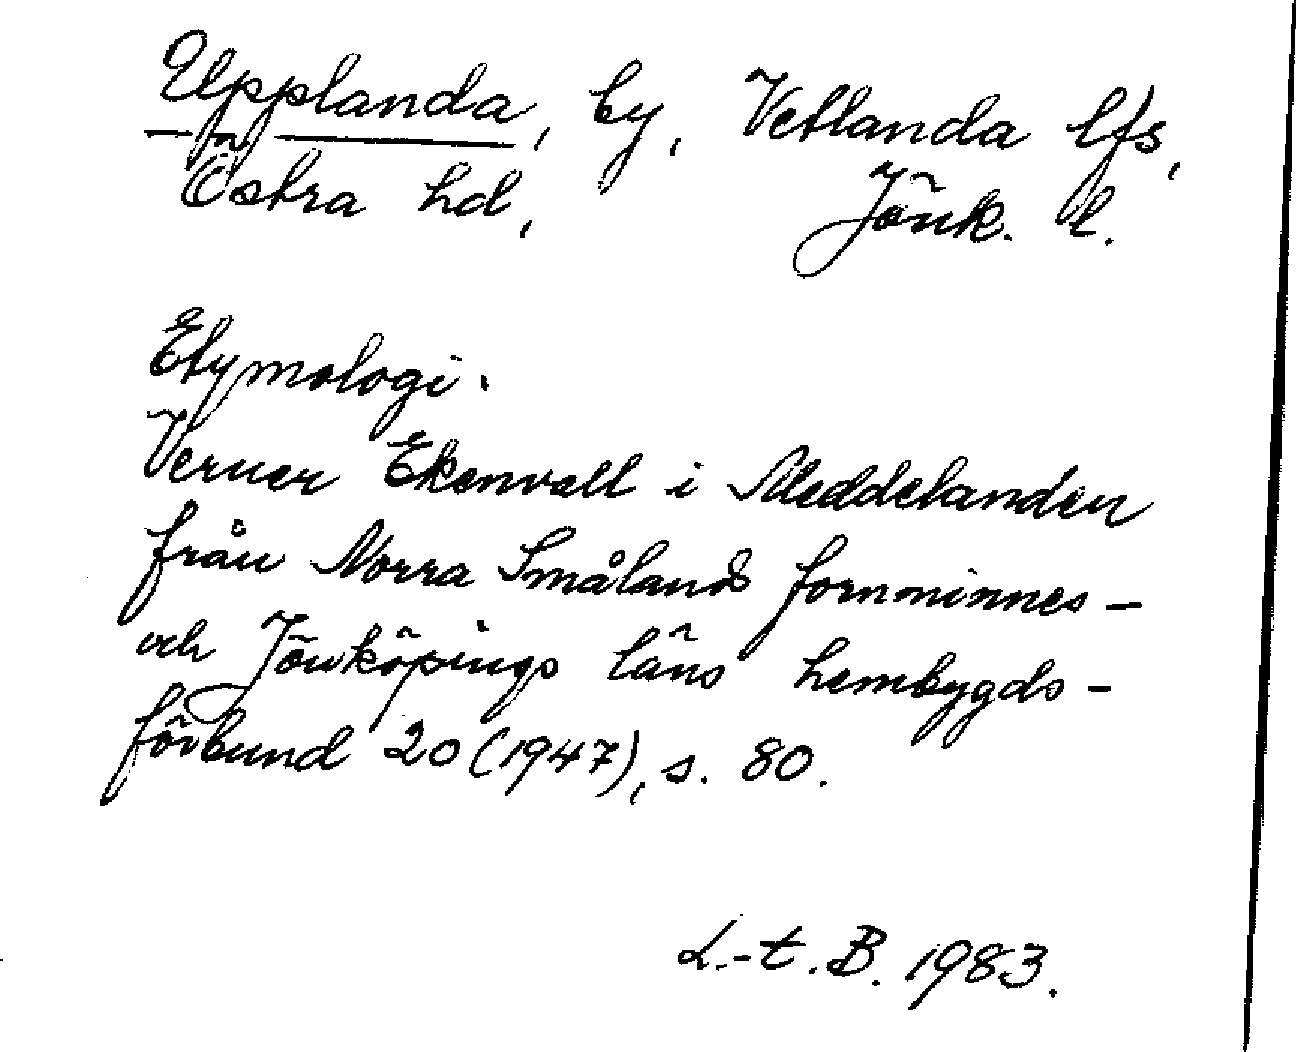 Upplanda, by, Vetlanda lfs,
Östra hd, Jönk. l.
Etymologi.
Verner Ekenvall i Meddelanden
från Norra Smålands fornminnes-
och Jönköpings läns hembygds-
förbund 20 (1947), s. 80.
L.-t. B. 1983.